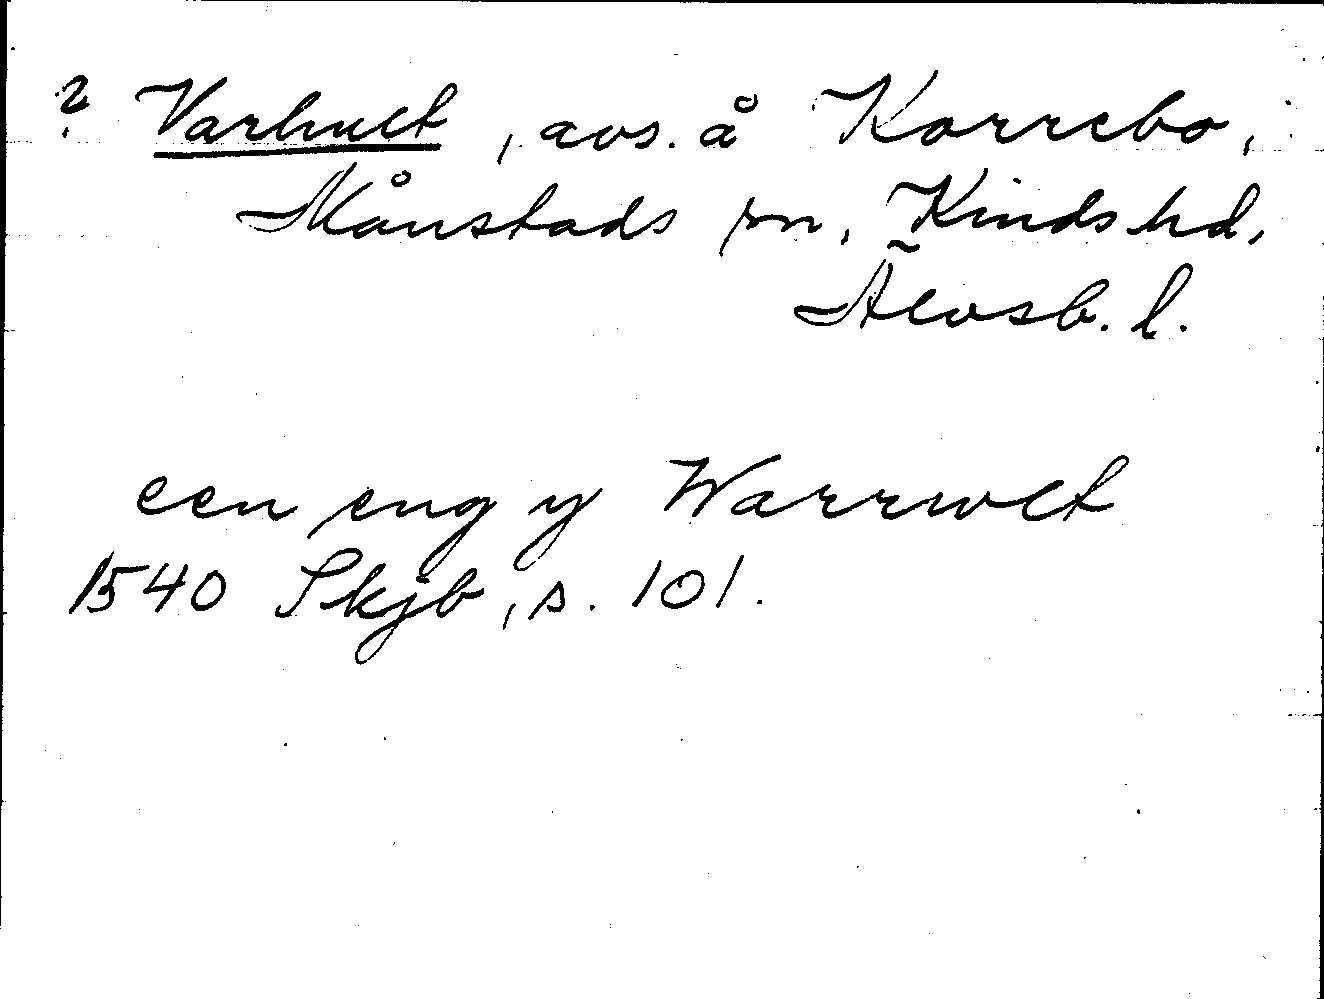 ? Varhult, avs. å Korrebo,
Månstads sn, Kinds hd,
Älvsb. l.
een eng y Warrwlt
1540 Skjb, s. 101.